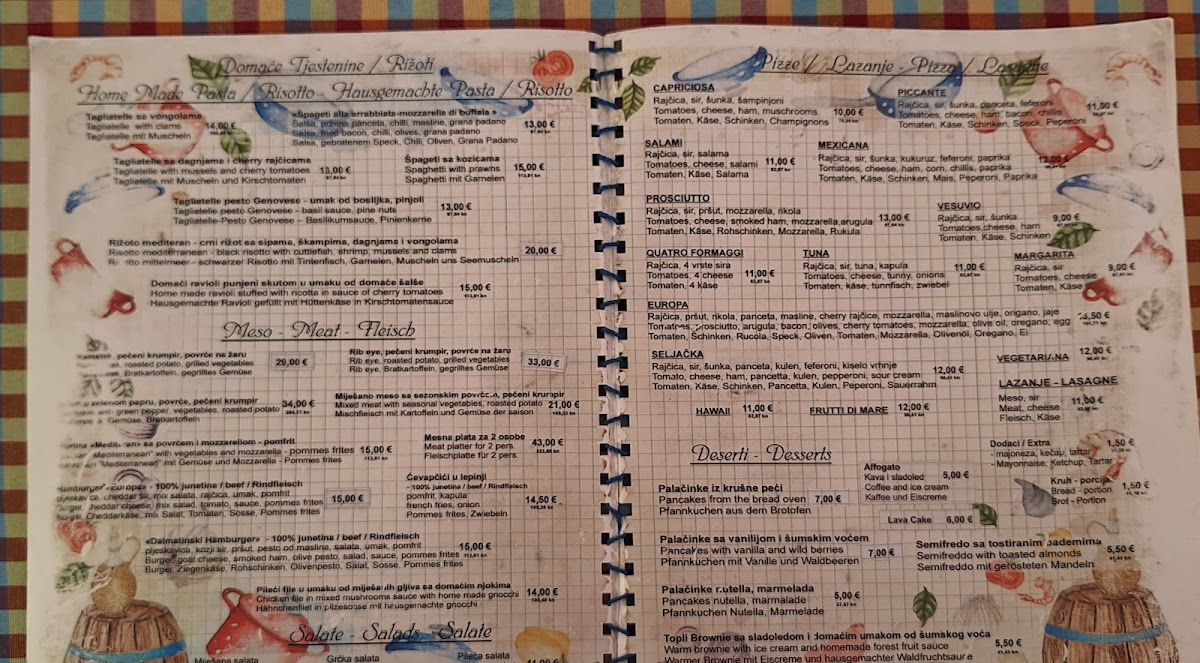 Domaće Tjestenine / Rižoti
Home Made Pasta / Risotto - Hausgemachte Pasta / Risotto
Tagliatelle sa vongolama
Tagliatelle with clams 14,00 €
Tagliatelle mit Muscheln
«Špageti alla arrabbiata-mozzarella di buffala »
Salsa, pržena panceta, chilli, masline, grana padano 13,00 €
Salsa, fried bacon, chilli, olives, grana padano 97,94 kn
Salsa, gebratenem Speck, Chili, Oliven, Grana Padano
Tagliatelle sa dagnjama i cherry rajčicama
Tagliatelle with mussels and cherry tomatoes 13,00 €
Tagliatelle mit Muscheln und Kirschtomaten 97,94 kn
Špageti sa kozicama
Spaghetti with prawns 15,00 €
Spaghetti mit Garnelen 113,01 kn
Tagliatelle pesto Genovese - umak od bosiljka, pinjoli
Tagliatelle pesto Genovese - basil sauce, pine nuts 13,00 €
Tagliatelle-Pesto Genovese – Basilikumsauce, Pinienkerne 97,94 kn
Rižoto mediteran - crni rižot sa sipama, škampima, dagnjama i vongolama
Risotto mediterranean - black risotto with cuttlefish, shrimp, mussels and clams 20,00 €
mittelmeer - schwarzer Risotto mit Tintenfisch, Garnelen, Muscheln uns Seemuscheln
Domaći ravioli punjeni skutom u umaku od domaće šalše
Home made ravioli stuffed with ricotta in sauce of cherry tomatoes 15,00 €
Hausgemachte Ravioli gefüllt mit Hüttenkäse in Kirschtomatensauce 113,01 kn
Meso - Meat - Fleisch
pečeni krumpir, povrće na žaru
roasted potato, grilled vegetables 29,00 €
Bratkartoffeln, gegrilltes Gemüse
Rib eye, pečeni krumpir, povrće na žaru
Rib eye, roasted potato, grilled vegetables 33,00 €
Rib eye, Bratkartoffeln, gegrilltes Gemüse
u zelenom papru, povrće, pečeni krumpir
with green pepper, vegetables, roasted potato 34,00 €
Gemüse, Bratkartoffeln
Miješano meso sa sezonskim povrćem, pečeni krumpir
Mixed meat with seasonal vegetables, roasted potato 21,00 €
Mischfleisch mit Kartoffeln und Gemüse der saison
«Mediteran» sa povrćem i mozzareliom - pomfrit
"Mediterranean" with vegetables and mozzarella - pommes frites 15,00 €
"Mediterranean" mit Gemüse und Mozzarella - Pommes frites 113,01 kn
Mesna plata za 2 osobe
Meat platter for 2 pers. 43,00 €
Fleischplatte für 2 pers.
Hamburger «Europa» - 100% junetina / beef / Rindfleisch
pljeskavica, cheddar sir, mix salata, rajčica, umak, pomfrit
Burger, cheddar cheese, mix salad, tomato, sauce, pommes frites 15,00 €
Burger, Cheddarkäse, mix Salat, Tomaten, Sosse, Pommes frites
Ćevapčići u lepinji
- 100% junetina / beef / Rindfleisch
pomfrit, kapula
french fries, onion 14,50 €
Pommes frites, Zwiebeln
«Dalmatinski Hamburger» - 100% junetina / beef / Rindfleisch
pljeskavica, kozji sir, pršut, pesto od maslina, salata, umak, pomfrit
Burger, goat cheese, smoked ham, olive pesto, salad, sauce, pommes frites 15,00 €
Burger, Ziegenkäse, Rohschinken, Olivenpesto, Salat, Sosse, Pommes frites
Pileći file u umaku od miješanih gljiva sa domaćim njokima
Chicken file in mixed mushrooms sauce with home made gnocchi 14,00 €
Hähnchenfilet in pilzesosse mit heusgemachte gnocchi
Salate - Salads - Salate
Miješana salata
Grčka salata
Pileća salata
11,00 €
Pizze / Lazanje - Pizza / Lasagne
CAPRICIOSA
Rajčica, sir, šunka, šampinjoni
Tomatoes, cheese, ham, muschrooms 10,00 €
Tomaten, Käse, Schinken, Champignons
PICCANTE
Rajčica, sir, šunka, panceta, feferoni 11,00 €
Tomatoes, cheese, ham, bacon, chillis
Tomaten, Käse, Schinken, Speck, Peperoni
SALAMI
Rajčica, sir, salama
Tomatoes, cheese, salami 11,00 €
Tomaten, Käse, Salama 82,87 kn
MEXICANA
Rajčica, sir, šunka, kukuruz, feferoni, paprika
Tomatoes, cheese, ham, corn, chillis, paprika 12,00 €
Tomaten, Käse, Schinken, Mais, Peperoni, Paprika
PROSCIUTTO
Rajčica, sir, pršut, mozzarella, rikola
Tomatoes, cheese, smoked ham, mozzarella,arugula 13,00 €
Tomaten, Käse, Rohschinken, Mozzarella, Rukula 97,94 kn
VESUVIO
Rajčica, sir, šunka 9,00 €
Tomatoes,cheese, ham
Tomaten, Käse, Schinken
QUATRO FORMAGGI
Rajčica, 4 vrste sira
Tomatoes, 4 cheese 11,00 €
Tomaten, 4 käse 82,87 kn
TUNA
Rajčica, sir, tuna, kapula
Tomatoes, cheese, tunny, onions 11,00 €
Tomaten, käse, tunnfisch, zwiebel 82,87 kn
MARGARITA
Rajčica, sir
Tomatoes, cheese 9,00 €
Tomaten, Käse
EUROPA
Rajčica, pršut, rikola, panceta, masline, cherry rajčice, mozzarella, maslinovo ulje, origano, jaje
Tomatoes, prosciutto, arugula, bacon, olives, cherry tomatoes, mozzarella, olive oil, oregano, egg
Tomaten, Schinken, Rucola, Speck, Oliven, Tomaten, Mozzarella, Olivenöl, Oregano, Ei
SELJAČKA
Rajčica, sir, šunka, panceta, kulen, feferoni, kiselo vrhnje
Tomato, cheese, ham, pancetta, kulen, pepperoni, sour cream 12,00 €
Tomaten, Käse, Schinken, Pancetta, Kulen, Peperoni, Sauerrahm 90,41 kn
VEGETARIANA 12,00 €
LAZANJE - LASAGNE
Meso, sir
Meat, cheese 11,00 €
Fleisch, Käse
HAWAII 11,00 €
82,87 kn
FRUTTI DI MARE 12,00 €
90,41 kn
Deserti - Desserts
Dodaci / Extra
- majoneza, kečap, tartar 1,50 €
- Mayonnaise, Ketchup, Tartar
Affogato
Kava i sladoled 5,00 €
Coffee and ice cream
Kaffee und Eiscreme
Kruh - porcija
Bread - portion 1,50 €
Brot - Portion
Palačinke iz krušne peći
Pancakes from the bread oven 7,00 €
Pfannkuchen aus dem Brotofen
Lava Cake 6,00 €
Palačinke sa vanilijom i šumskim voćem
Pancakes with vanilla and wild berries 7,00 €
Pfannkuchen mit Vanille und Waldbeeren
Semifredo sa tostiranim bademima
Semifreddo with toasted almonds 5,50 €
Semifreddo mit gerösteten Mandeln
Palačinke nutella, marmelada
Pancakes nutella, marmalade 5,00 €
Pfannkuchen Nutella, Marmelade 37,67 kn
Topli Brownie sa sladoledom i domaćim umakom od šumskog voća
Warm brownie with ice cream and homemade forest fruit sauce 5,50 €
Warmer Brownie mit Eiscreme und hausgemachter Waldfruchtsauce